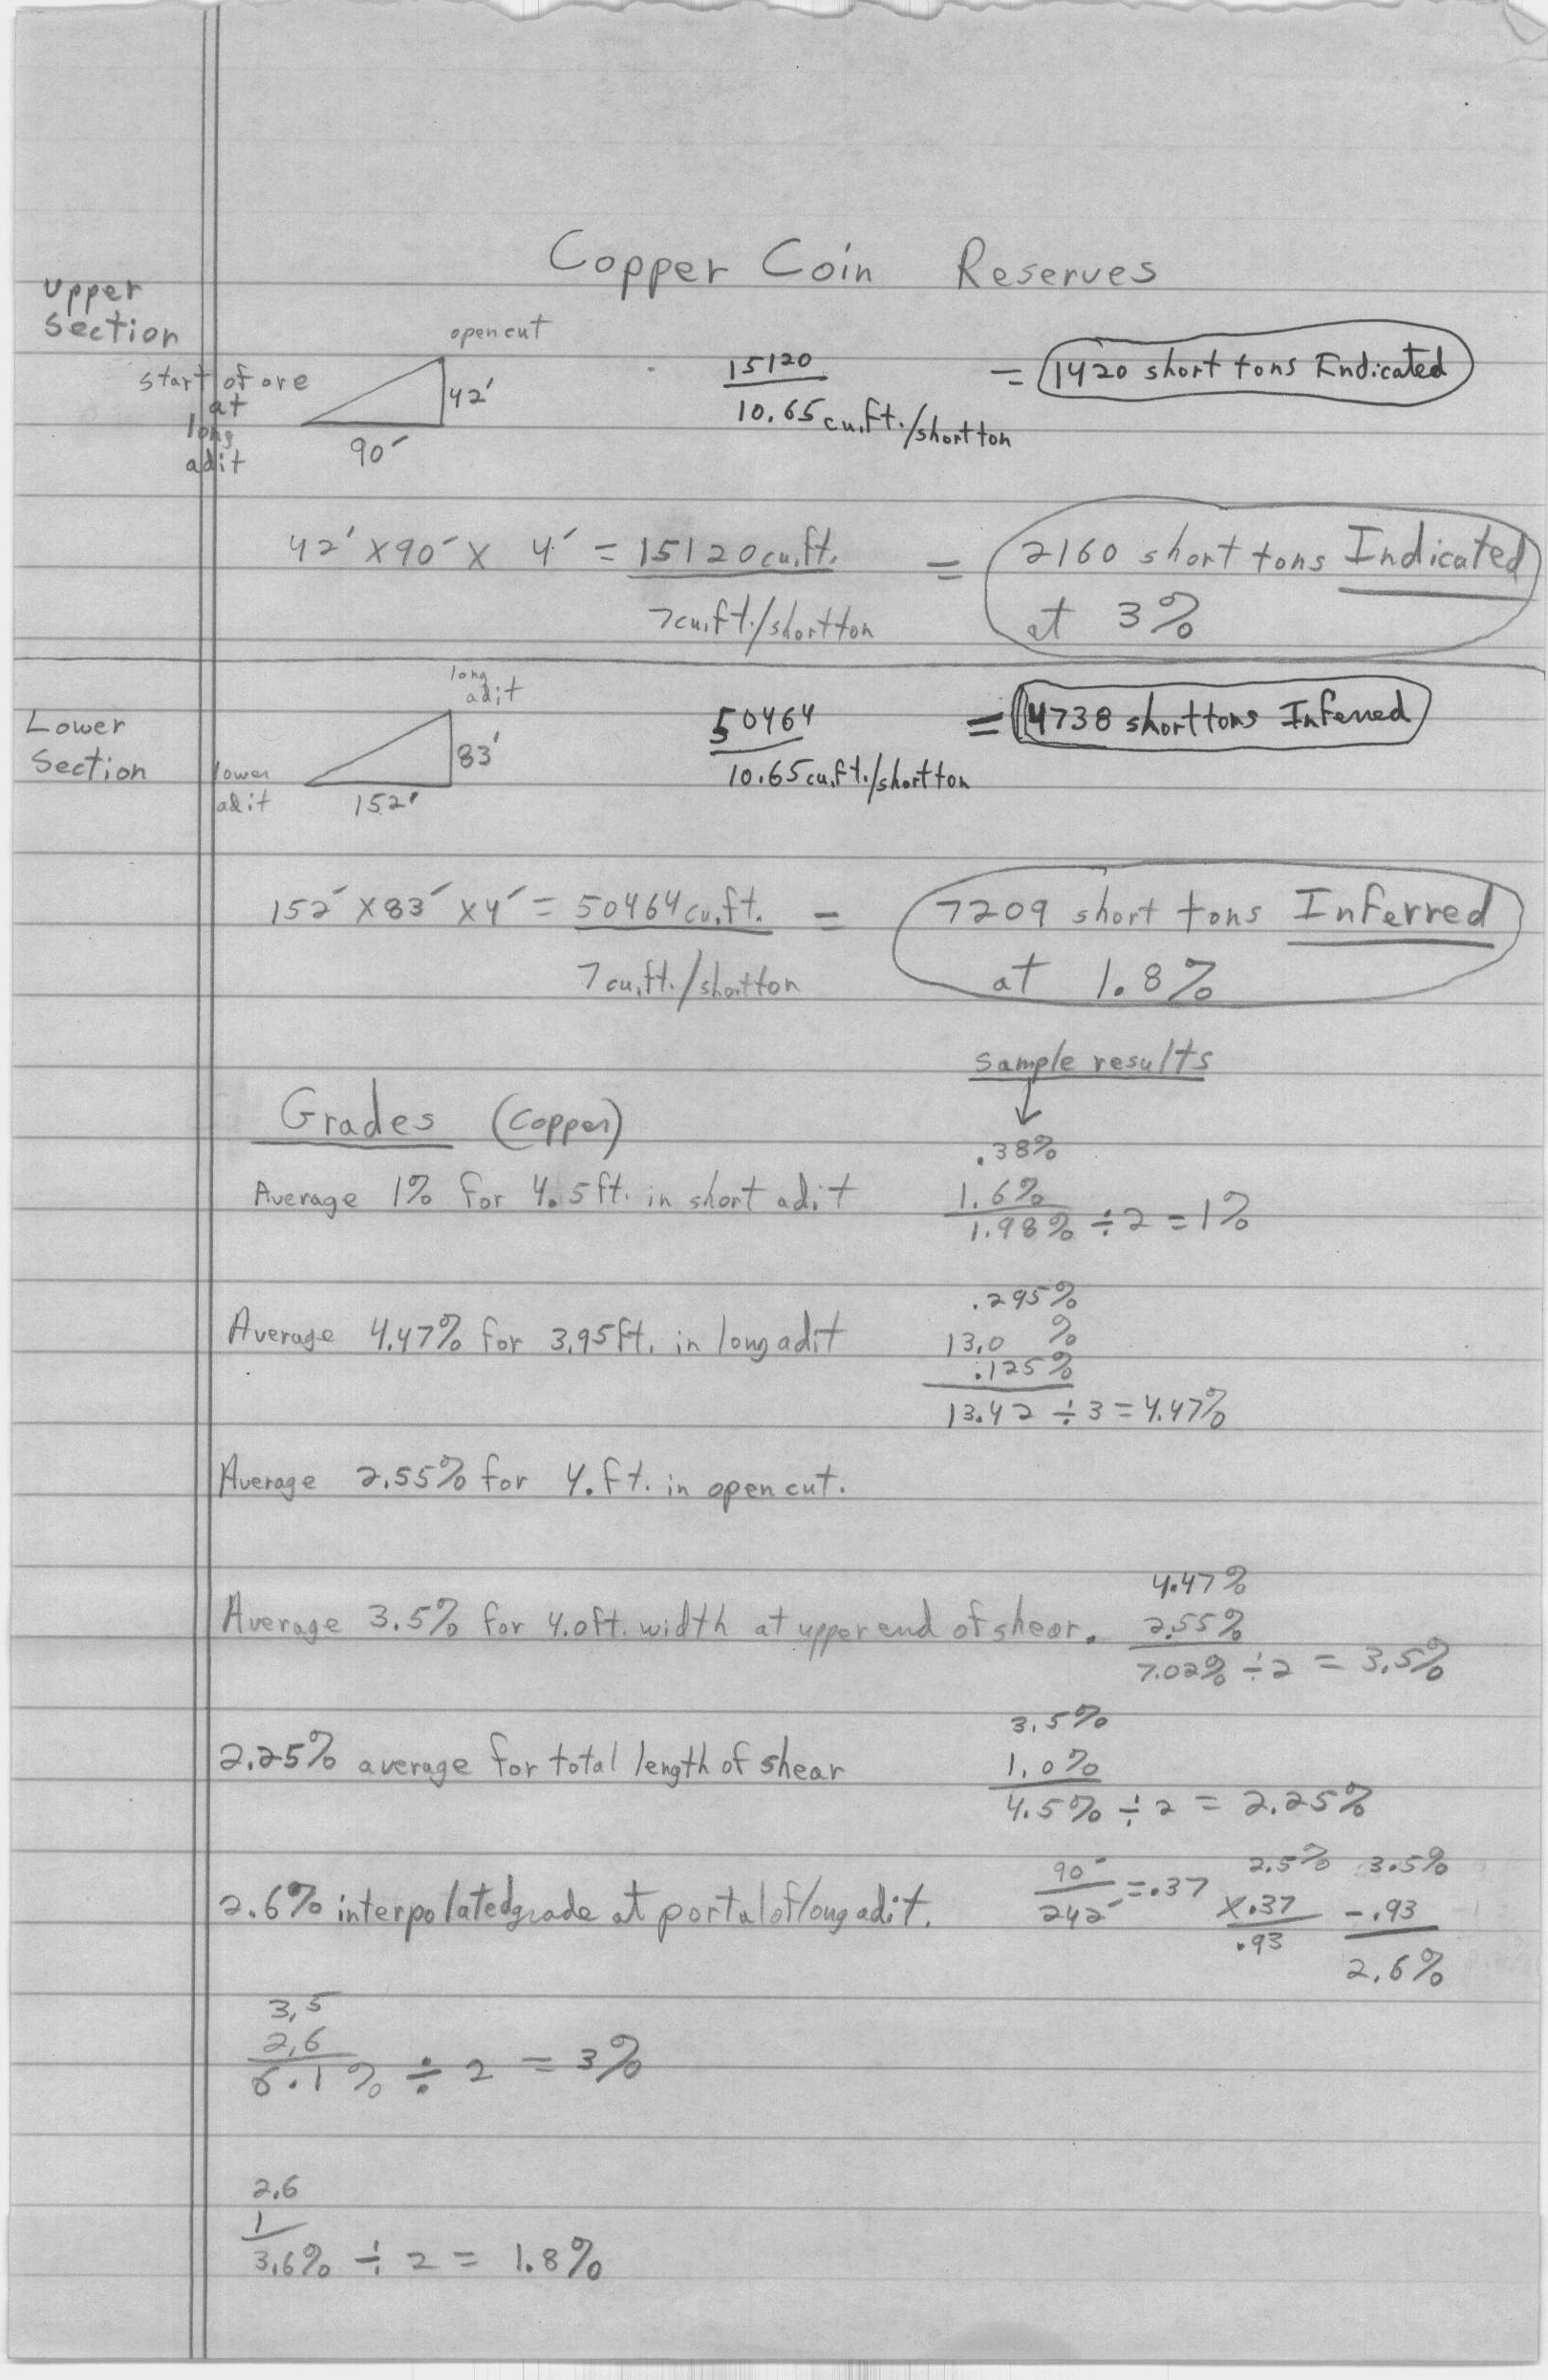 Copper Coin Reserves
Upper
Section
open cut
start of ore
at
long
adit
42'
90'
15120
10.65 cu.ft./short ton
= 1420 short tons Indicated
42' x 90' x 4' = 15120 cu.ft.
7 cu.ft./short ton
= 2160 short tons Indicated
at 3%
Lower
Section
long
adit
lower
adit
83'
152'
50464
10.65 cu.ft./short ton
= 4738 short tons Inferred
152' x 83' x 4' = 50464 cu.ft. =
7 cu.ft./short ton
7209 short tons Inferred
at 1.8%
Sample results
Grades (Copper)
.38%
Average 1% for 4.5 ft. in short adit
1.6%
1.98% ÷ 2 = 1%
.295%
Average 4.47% for 3.95 ft. in long adit
13.0 %
.125%
13.42 ÷ 3 = 4.47%
Average 2.55% for 4. ft. in open cut.
4.47%
Average 3.5% for 4.0 ft. width at upper end of shear.
2.55%
7.02% ÷ 2 = 3.5%
3.5%
2.25% average for total length of shear
1.0%
4.5% ÷ 2 = 2.25%
2.6% interpolated grade at portal of long adit.
90'
242'
= .37
2.5%
x .37
.93
3.5%
- .93
2.6%
3.5
2.6
6.1% ÷ 2 = 3%
2.6
1
3.6% ÷ 2 = 1.8%